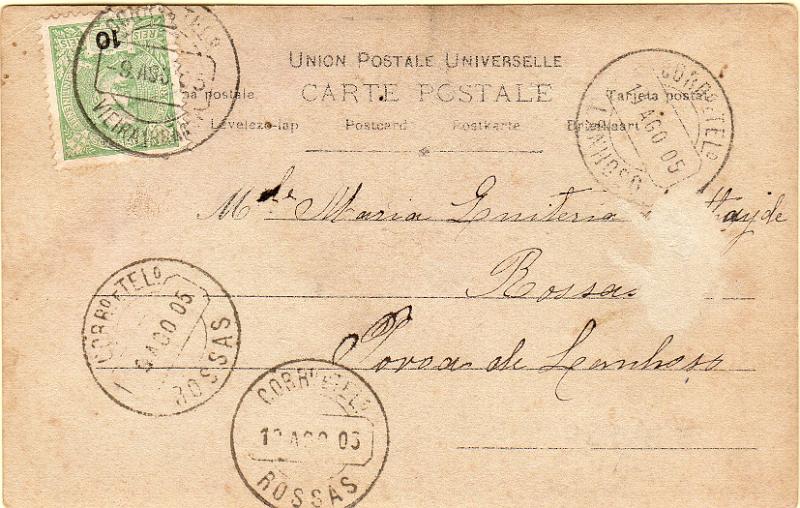 10
REIS
CORRº E TELº
9 AGO 05
VIEIRA
UNION POSTALE UNIVERSELLE
CARTE POSTALE
postale
Tarjeta postal
Levelezo-lap Postcard Postkarte Briefkaart
CORRº E TELº
AGO 05
LANHOSO
Mlle Maria Quiteria
Rossas
Povoa de Lanhoso
CORRº E TELº
9 AGO 05
ROSSAS
CORRº E TELº
AGO 05
ROSSAS